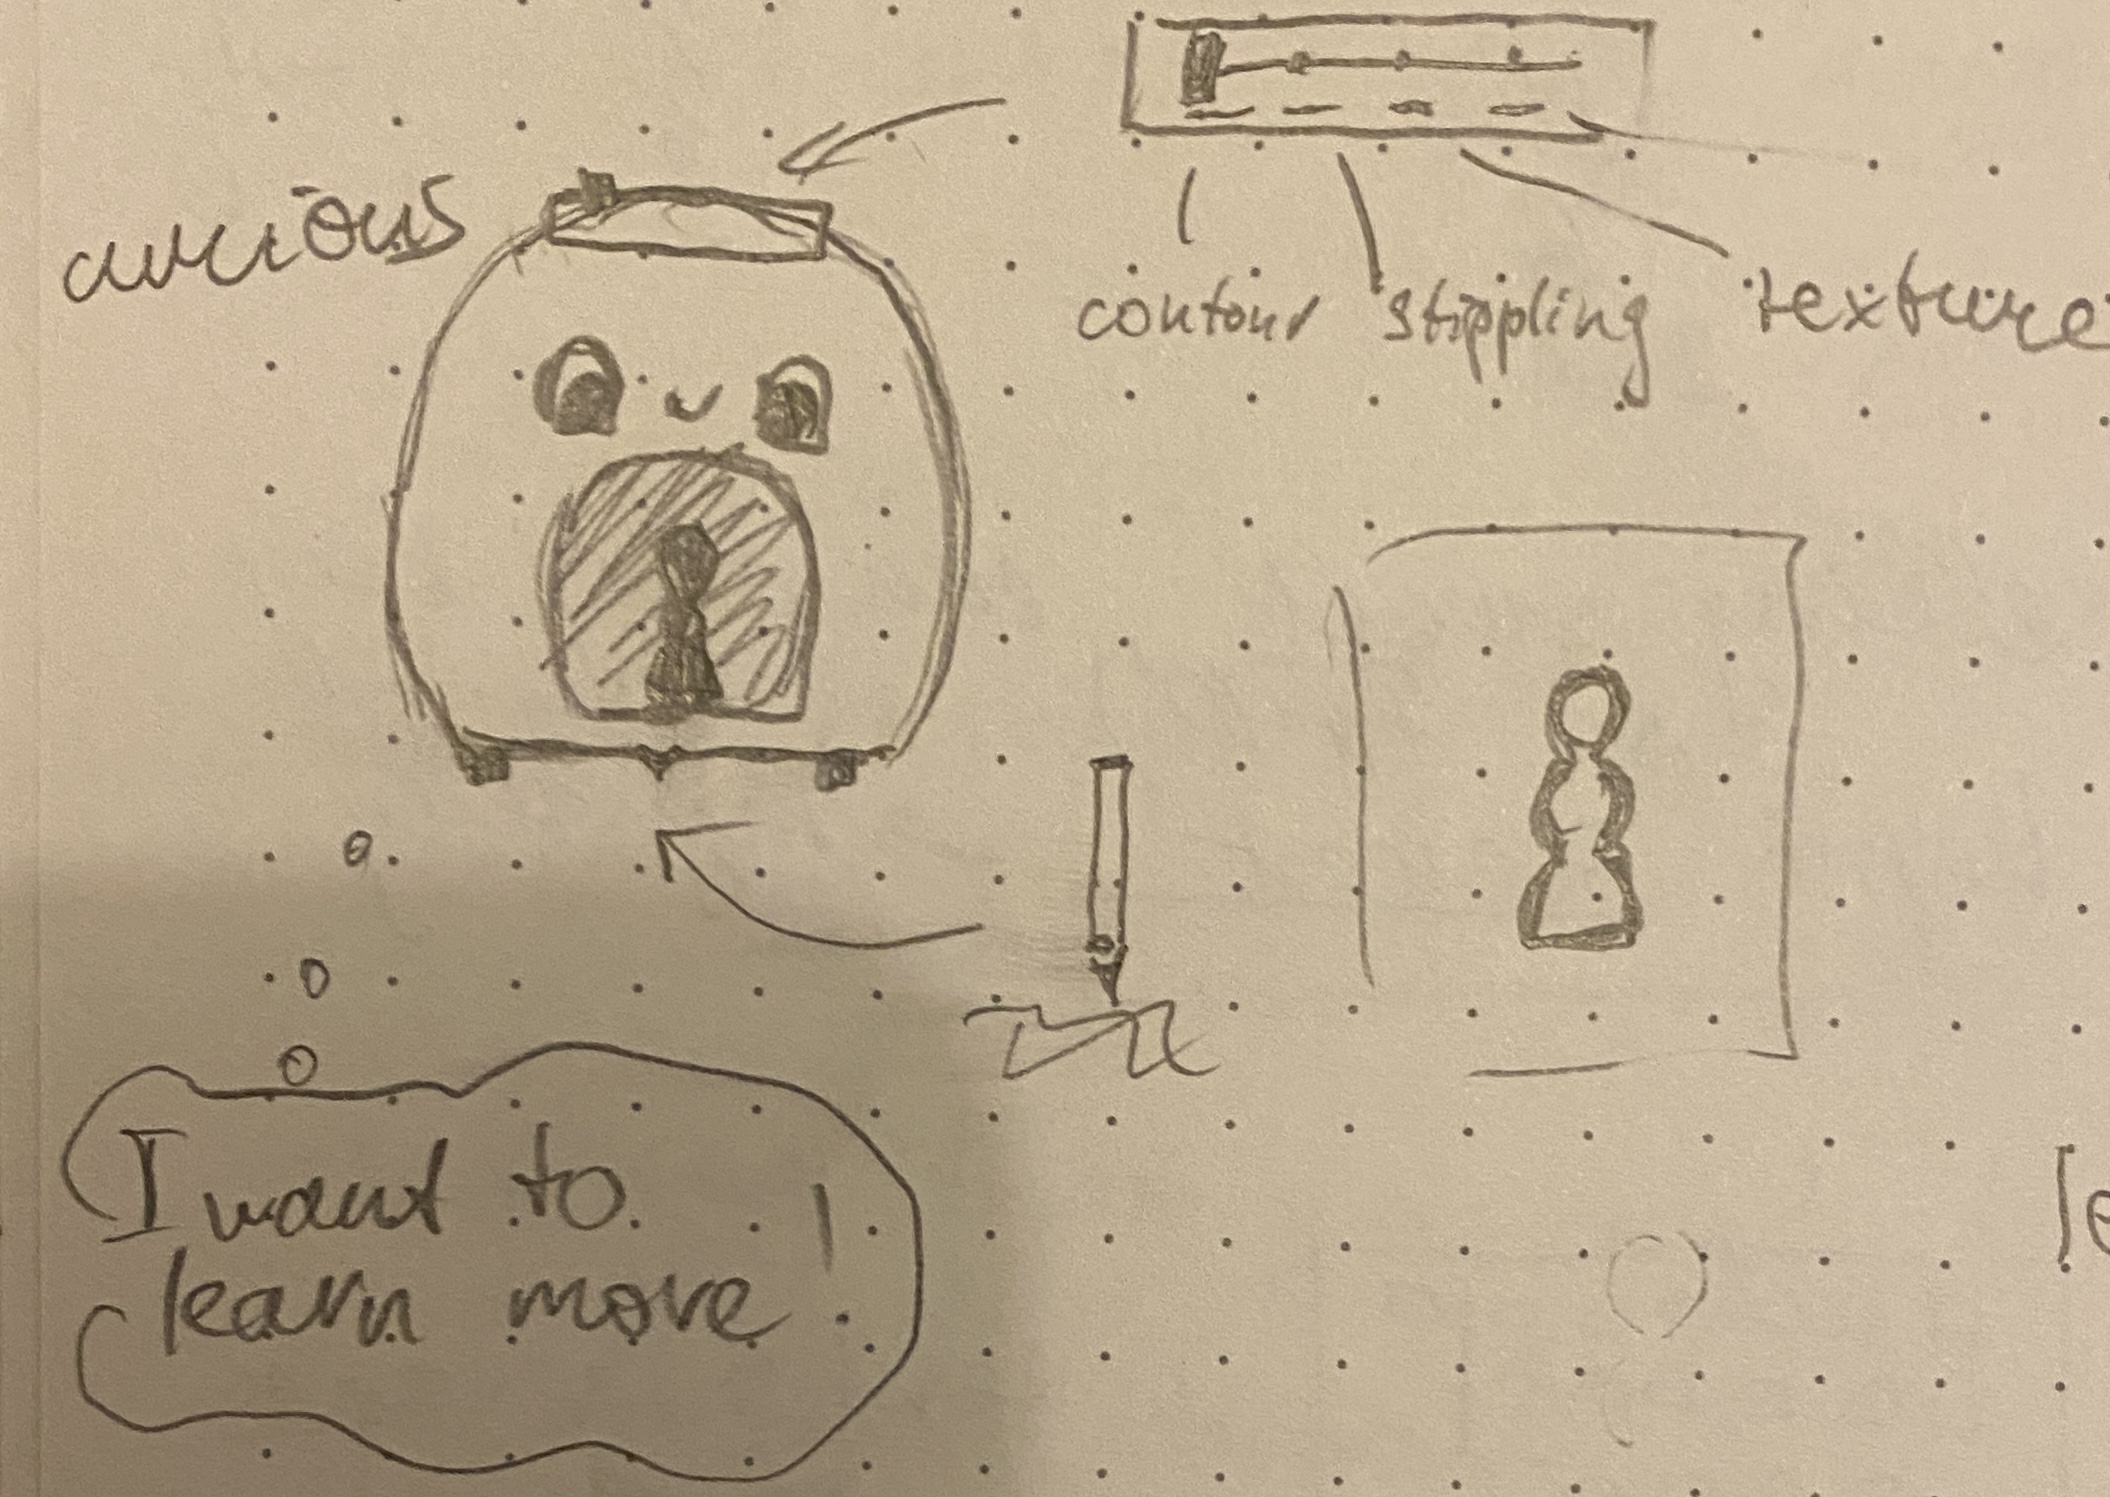 curious
contour stippling texture
I want to
learn more!
le